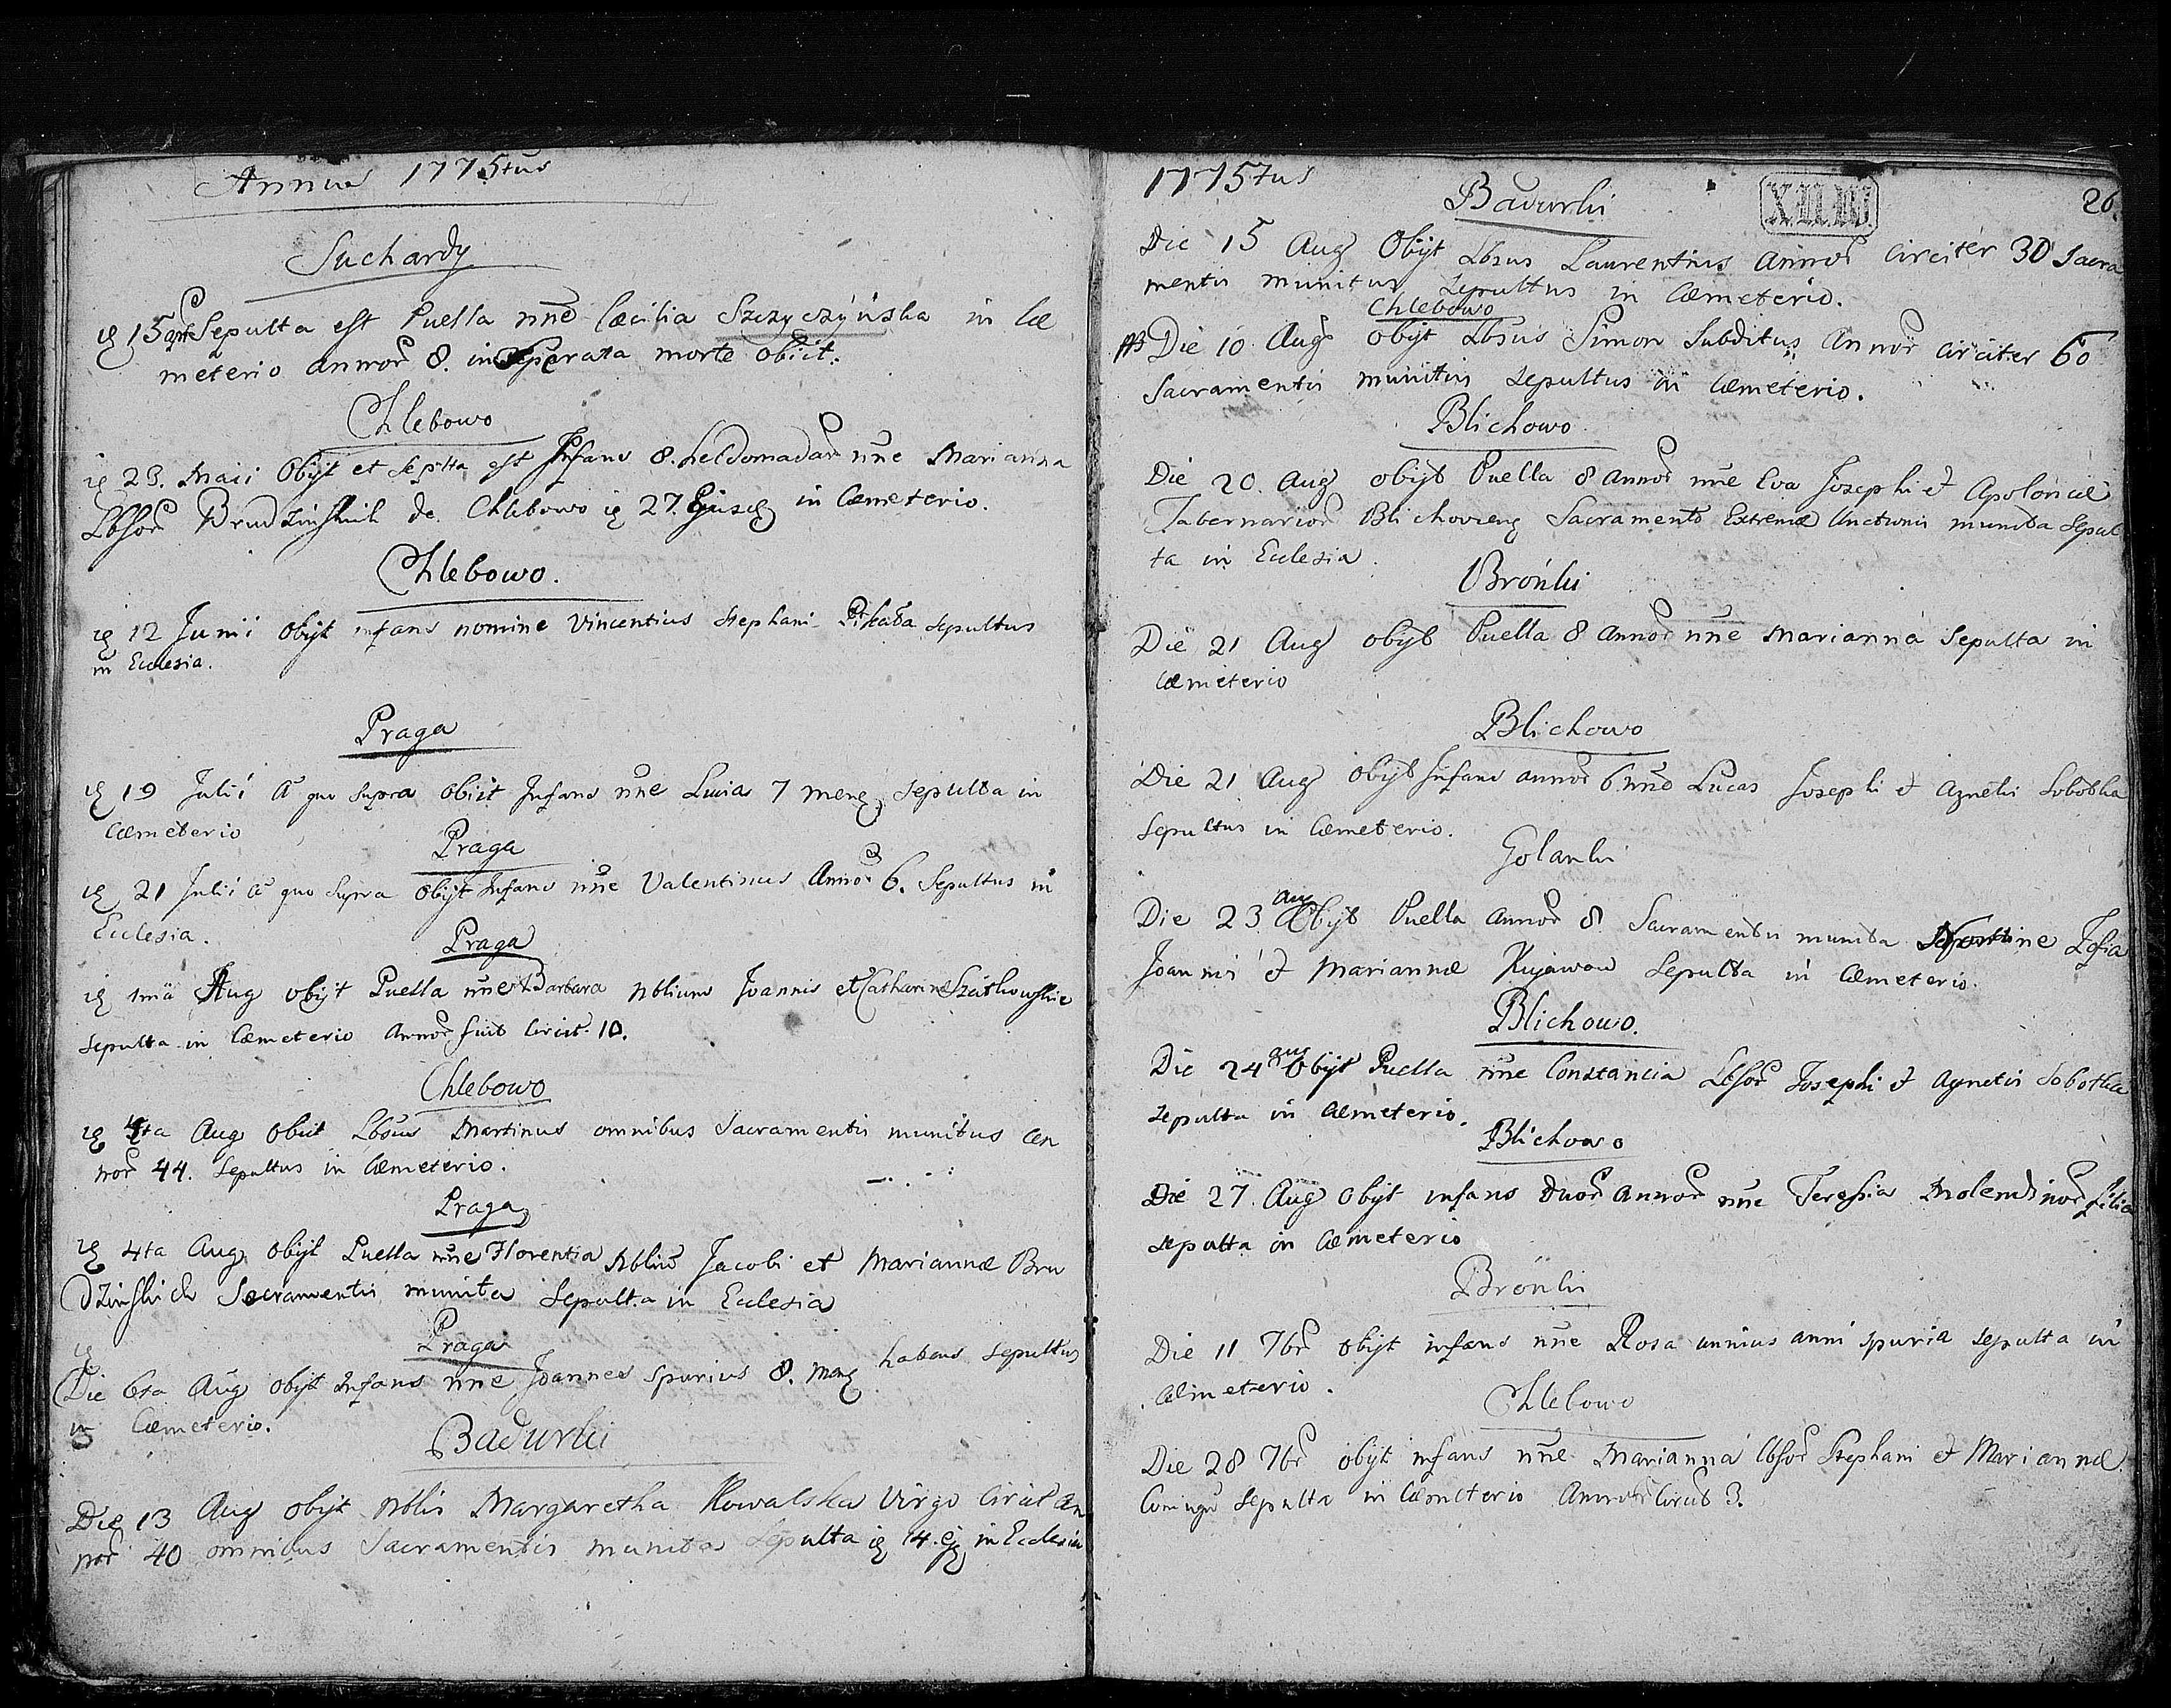 Annus 1775tus
Suchardy
ie 15 Sepulta est Puella nne Cæcilia Szczyczyńska in Cæ
meterio annor 8. insperata morte obiit.
Chlebowo
ie 23. Maii Obijt et septta est Infans 8. hebdomadar nne Marianna
Lbsor Brudzińskich de Chlebowo ie 27. Ejusd in Cæmeterio.
Chlebowo.
ie 12 Junii obijt infans nomine Vincentius Stephani sepultus
in Ecclesia.
Praga
ie 19 Julii A quo supra obiit Infans nne Lucia 7 mens sepulta in
Cæmeterio
Praga
ie 21 Julii A quo supra obijt Infans nne Valentinus Annor 6. Sepultus in
Ecclesia.
Praga
ie 1mä Aug obijt Puella nne Barbara Nblium Joannis et Catharinæ
sepulta in Cæmeterio Annor fuit Circit. 10.
Chlebowo
ie 4ta Aug obiit Lbsus Martinus omnibus Sacramentis munitus an
nor 44. Sepultus in Cæmeterio.
Praga
ie 4ta Aug obijt Puella nne Florentia Nbliu Jacobi et Mariannæ Bru
dzińskich Sacramentis munita Sepulta in Ecclesia
Praga
Die 6ta Aug obijt Infans nne Joannes spurius 8. mens habens sepultus
in Cæmeterio.
Badurki
Die 13 Aug obijt Nblis Margaretha Kowalska Virgo Circit an
nor 40 omnibus Sacramentis munita sepulta ie 14. ej in Ecclesia
1775tus
26.
Badurki
Die 15 Aug Obijt Lbsus Laurentius Annor circiter 30 Sacra
mentis munitus Sepultus in Cæmeterio.
Chlebowo
Die 10 Aug obijt Lbsus Simon Subditus Annor circiter 60
Sacramentis munitus sepultus in Cæmeterio.
Blichowo
Die 20. Aug obijt Puella 8 annor nne Eva Josephi et Apoloniæ
Tabernarior Blichoviens Sacramento Extremæ Unctionis munita Sepul
ta in Ecclesia.
Brónki
Die 21 Aug obijt Puella 8 annor nne Marianna Sepulta in
Cæmeterio
Blichowo
Die 21 Aug obijt Infans annor 6 nne Lucas Josephi et Agnetis Sobotka
Sepultus in Cæmeterio.
Golanki
Die 23 Aug Obijt Puella annor 8. Sacramentis munita Zofia
Joannis et Mariannæ Kujawow Sepulta in Cæmeterio.
Blichowo.
Die 24 aug Obijt Puella nne Constancia Lbsor Josephi et Agnetis Sobotka
sepulta in Cæmeterio.
Blichowo
Die 27. Aug obijt infans duor annor nne Teressia Molendinor filia
sepulta in Cæmeterio
Brónki
Die 11 7br obijt infans nne Rosa unnius anni spuria sepulta in
Cæmeterio.
Chlebowo
Die 28 7br obijt infans nne Marianna Lbsor Stephani et Mariannæ
Coniugu Sepulta in Cæmeterio Annor Circit 3.